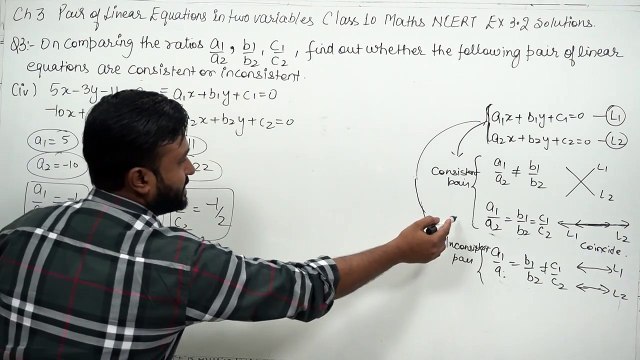 Ch 3 Pair of Linear Equations in two variables Class 10 Maths NCERT Ex 3.2 Solutions.
Q3:- On comparing the ratios a₁/a₂, b₁/b₂, c₁/c₂, find out whether the following pair of linear
equations are consistent or inconsistent.
(iv) 5x-3y-11 = a₁x+b₁y+c₁=0
-10x+ a₂x+b₂y+c₂=0
a₁=5
a₂=-10 22
a₁ c₂ = -1/2
a₁x+b₁y+c₁=0 L₁
a₂x+b₂y+c₂=0 L₂
Consistent pair a₁/a₂ ≠ b₁/b₂ L₁ L₂
a₁/a₂ = b₁/b₂ = c₁/c₂ L₁ L₂
Coincide.
Inconsistent pair a₁/a = b₁/b₂ ≠ c₁/c₂ L₁ L₂